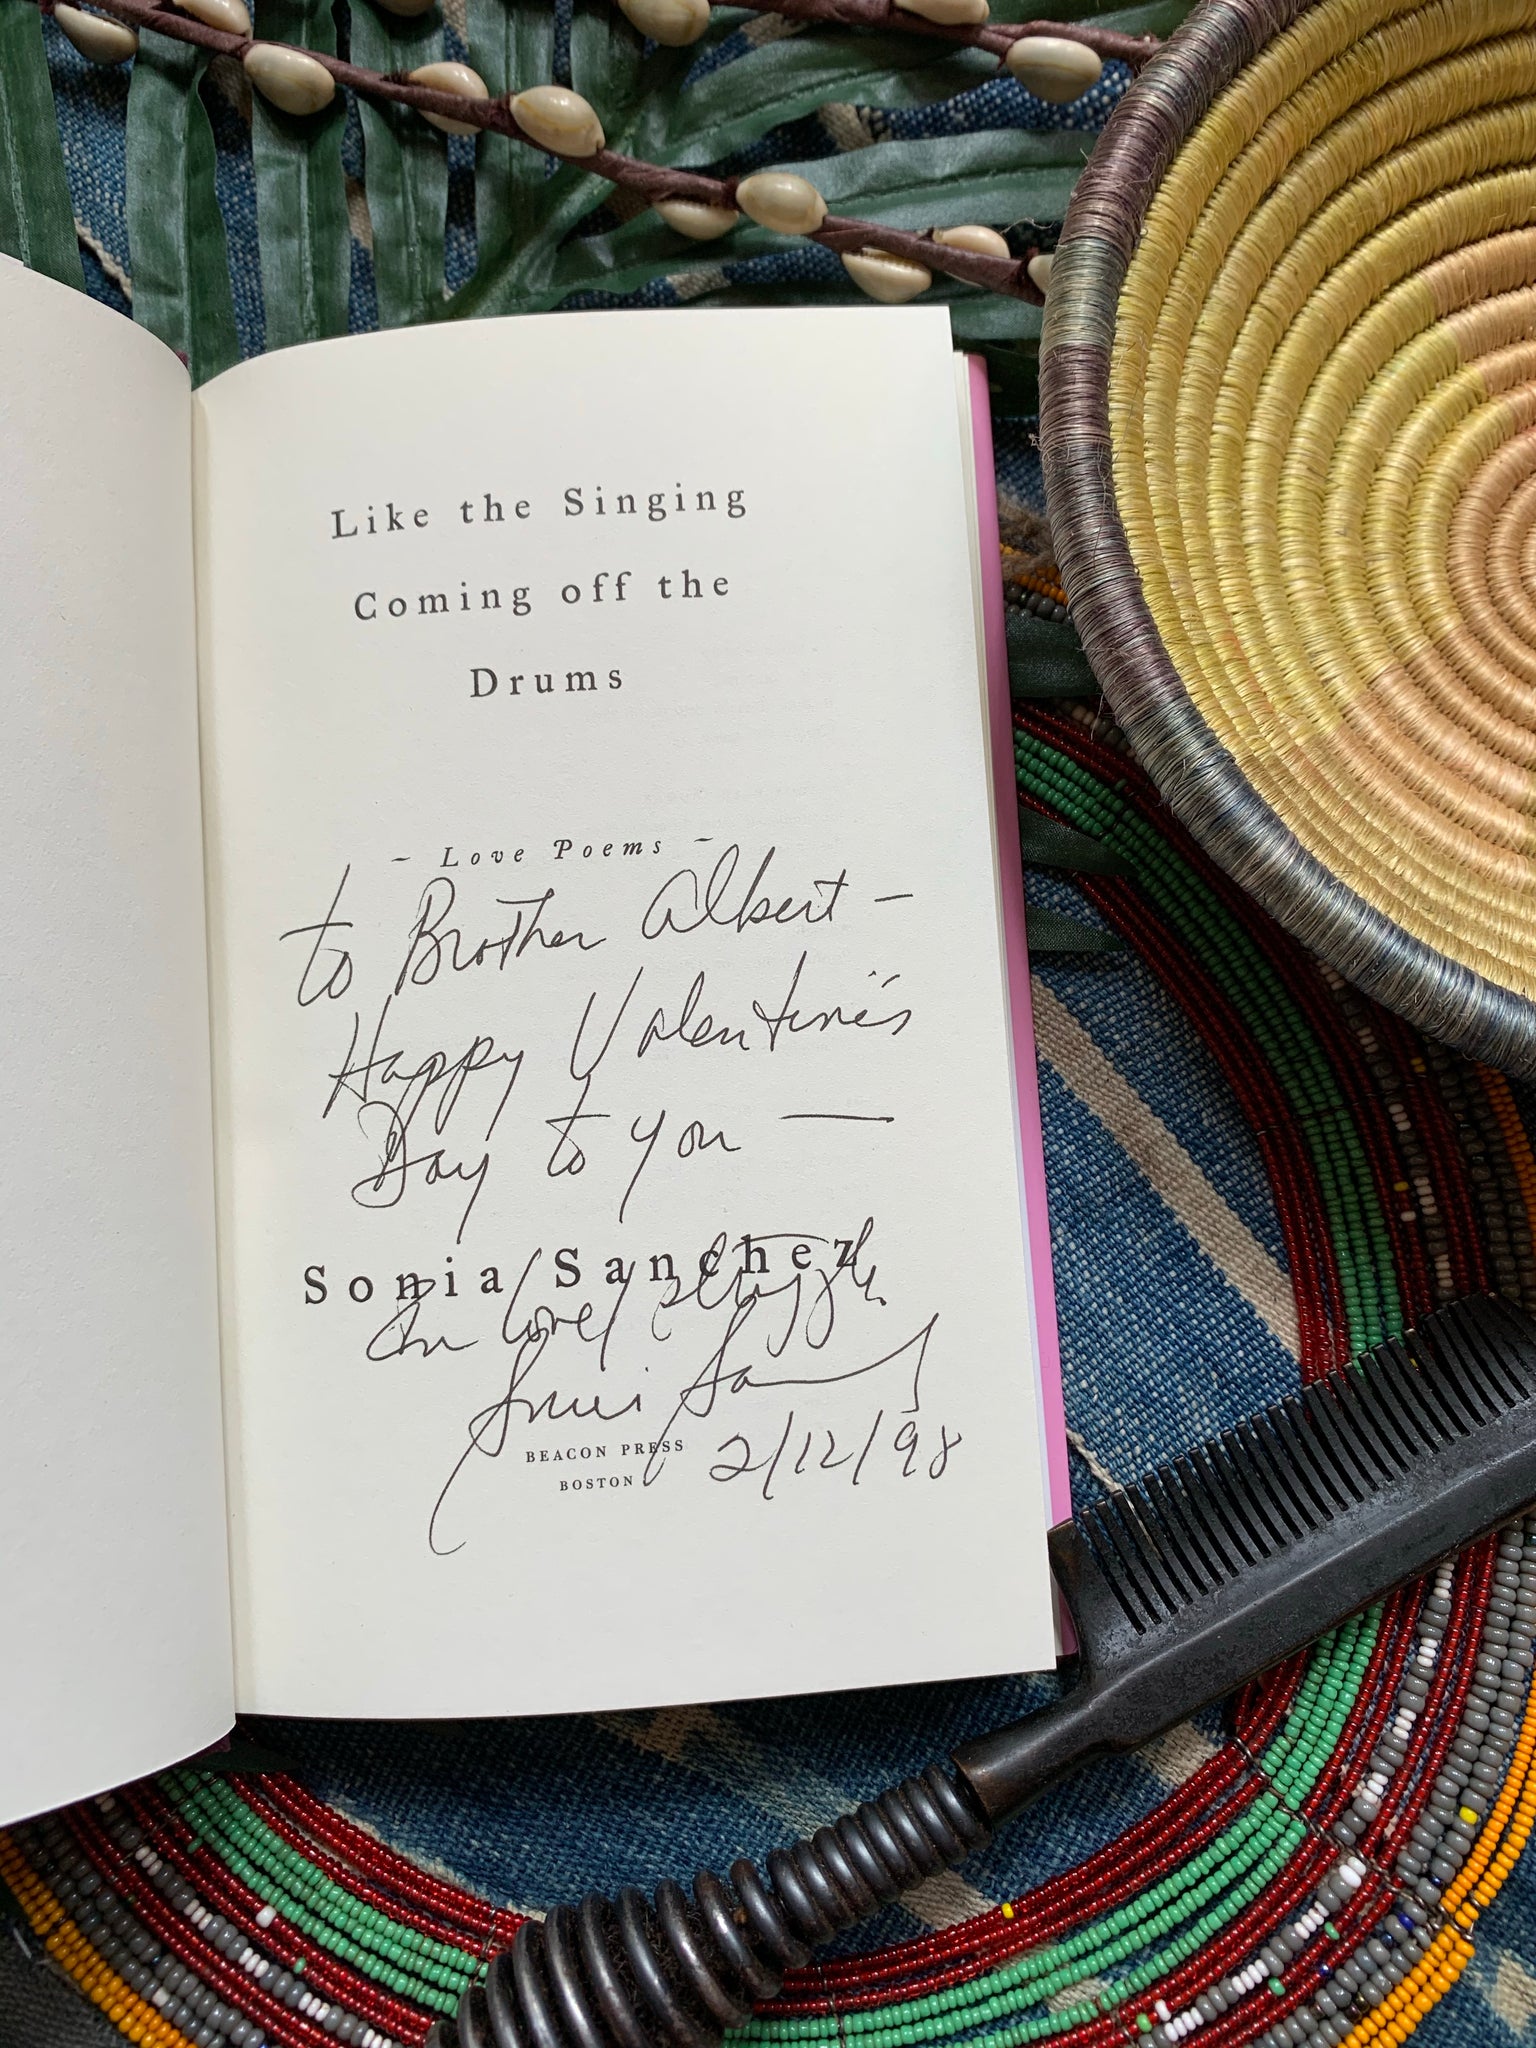 Like the Singing
Coming off the
Drums
~ Love Poems ~
to Brother Albert —
Happy Valentine's
Day to you —
Sonia Sanchez
In love / struggle,
Sonia Sanchez
BEACON PRESS
BOSTON
2/12/98